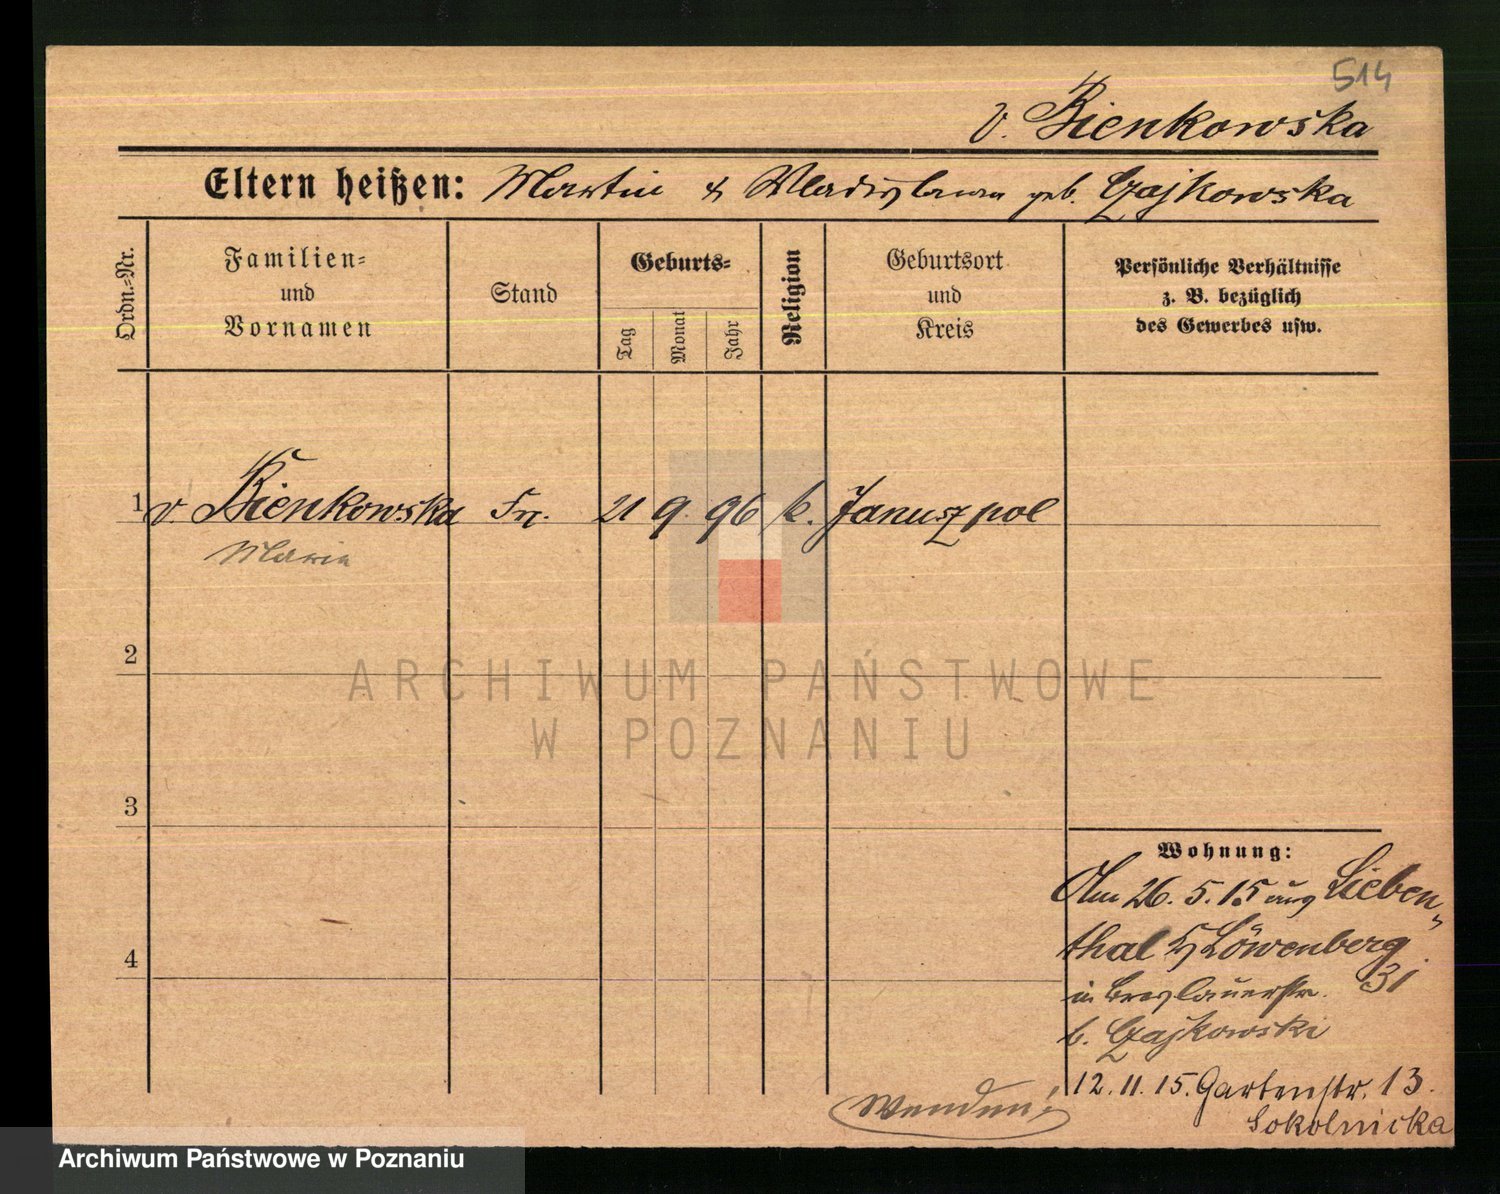 514
v. Bienkowska
Eltern heißen: Martin & Wladislawa geb. Czajkowska
Ordn.-Nr.
Familien-
und
Vornamen
Stand
Geburts-
Tag
Monat
Jahr
Religion
Geburtsort
und
Kreis
Persönliche Verhältnisse
z. B. bezüglich
des Gewerbes usw.
1 v. Bienkowska Frl. 21 9. 96 k. Januszpol
Maria
2
ARCHIWUM PAŃSTWOWE
W POZNANIU
3
Wohnung:
Am 26. 5. 15 aus Lieben-
thal Löwenberg
in Breslauerstr. 31
b. Czajkowski
12. 11. 15. Gartenstr. 13.
Sokolnicka
Wenden!
4
Archiwum Państwowe w Poznaniu